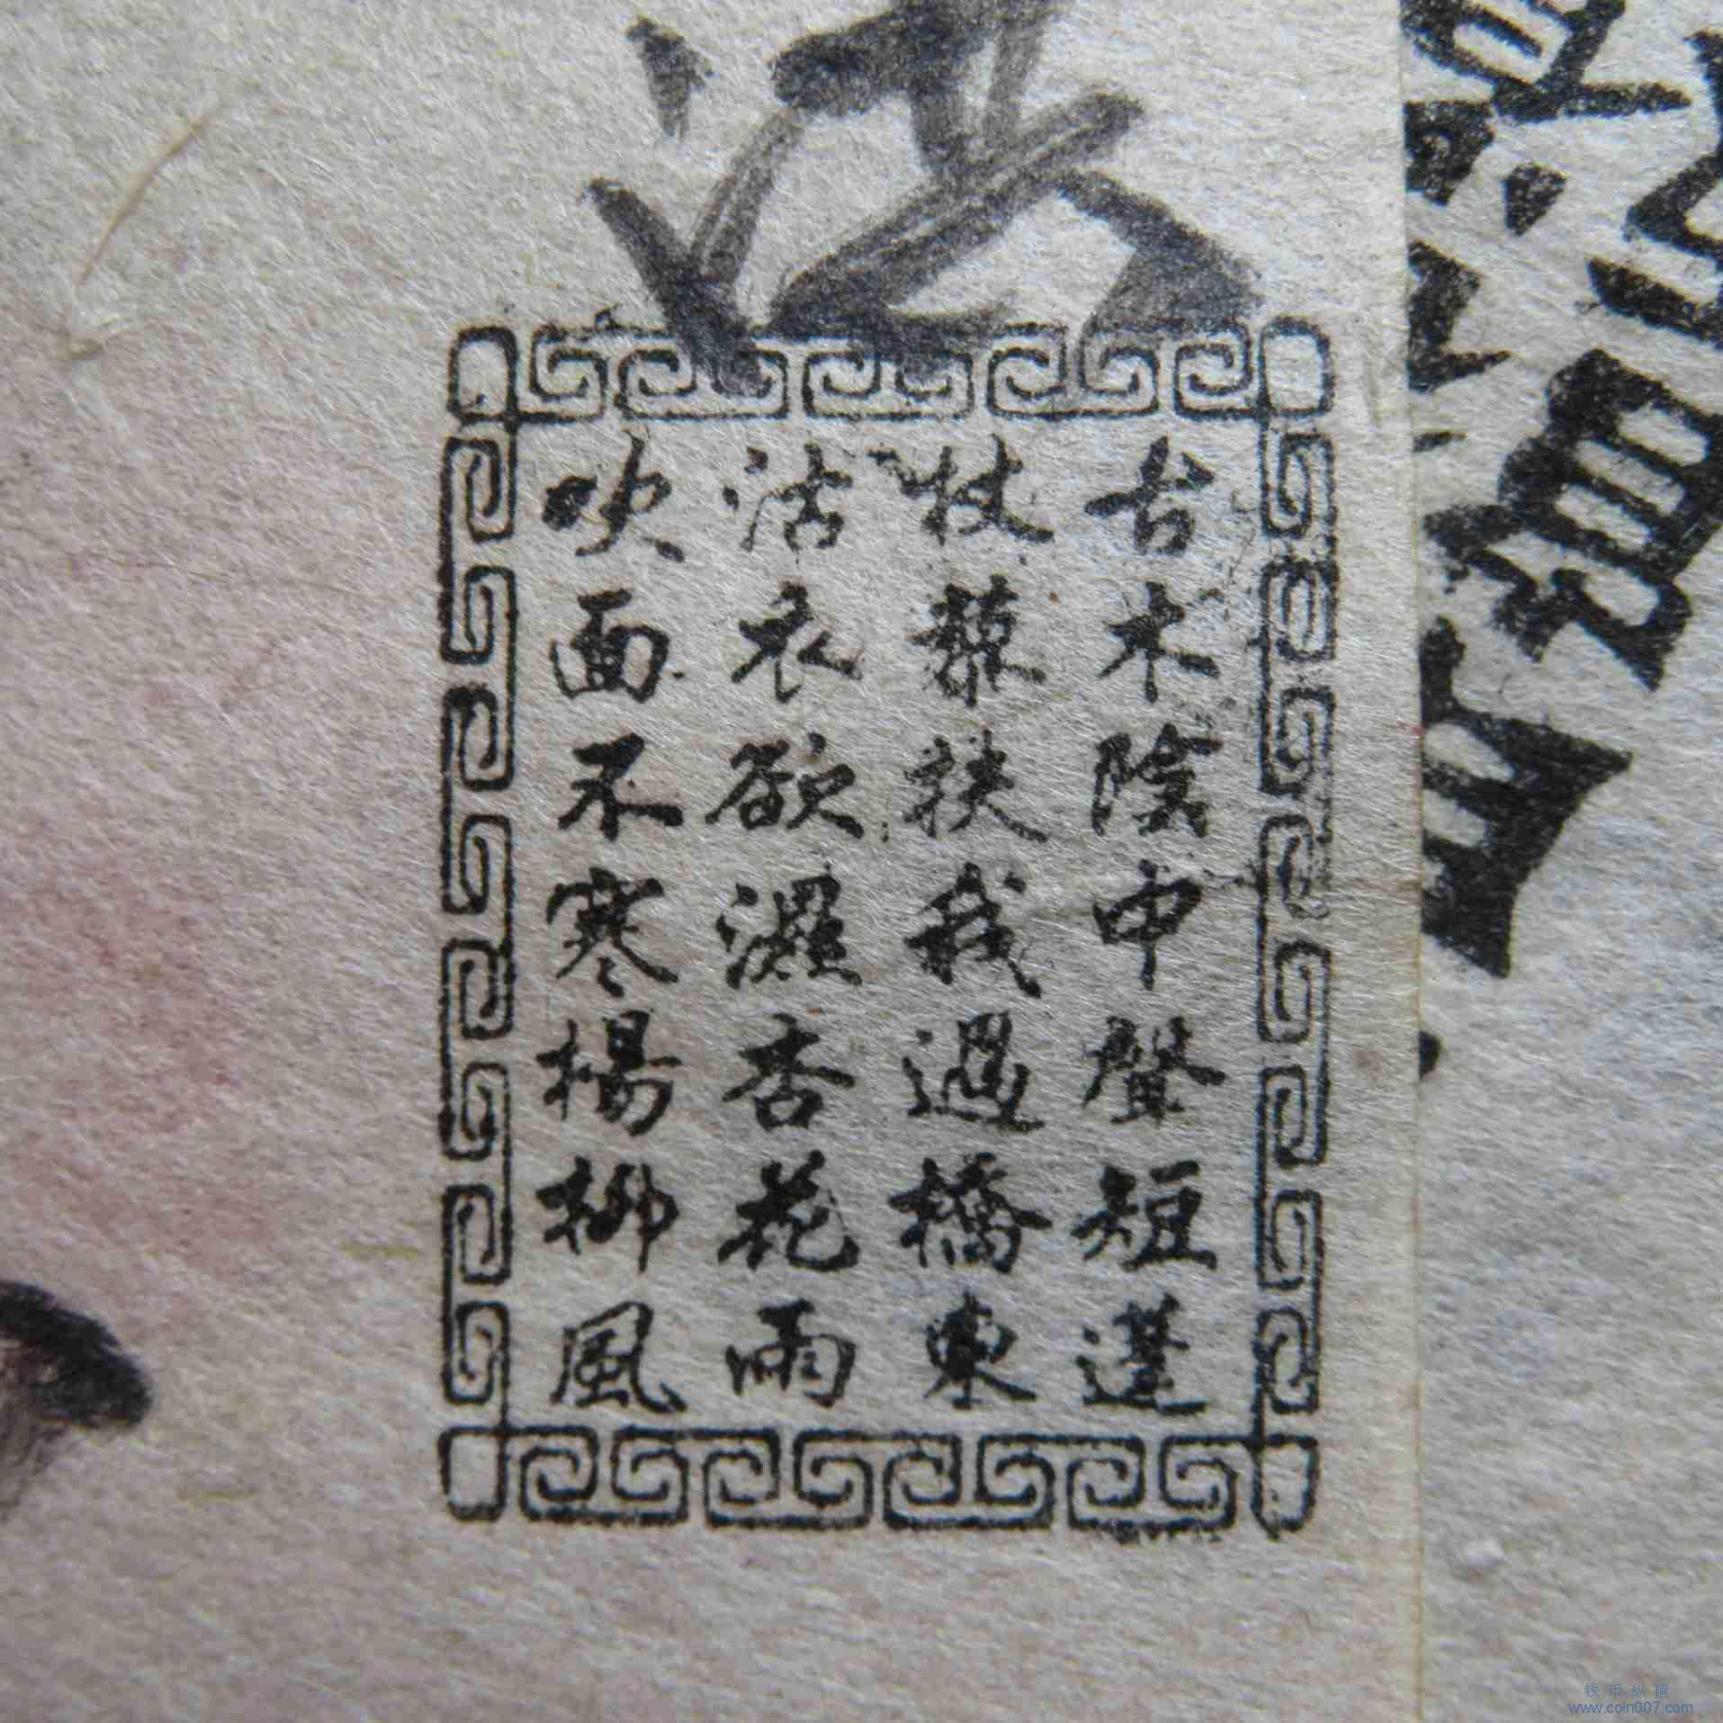 古木陰中聲短蓬
杖藜扶我過橋東
沾衣欲濕杏花雨
吹面不寒楊柳風
钱币纵横
www.coin007.com